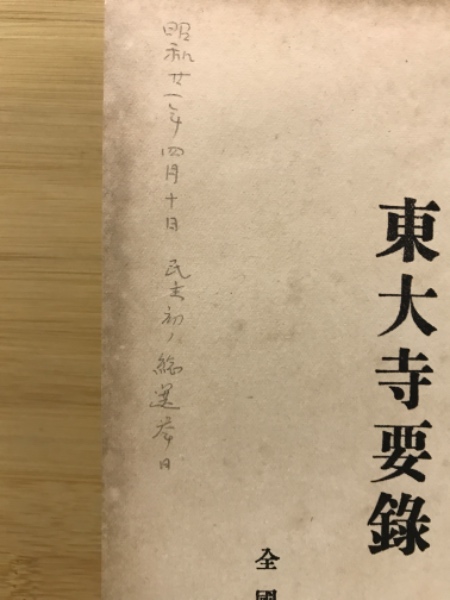 東大寺要錄
全國
昭和廿一年四月十日　民主初ノ総選挙日